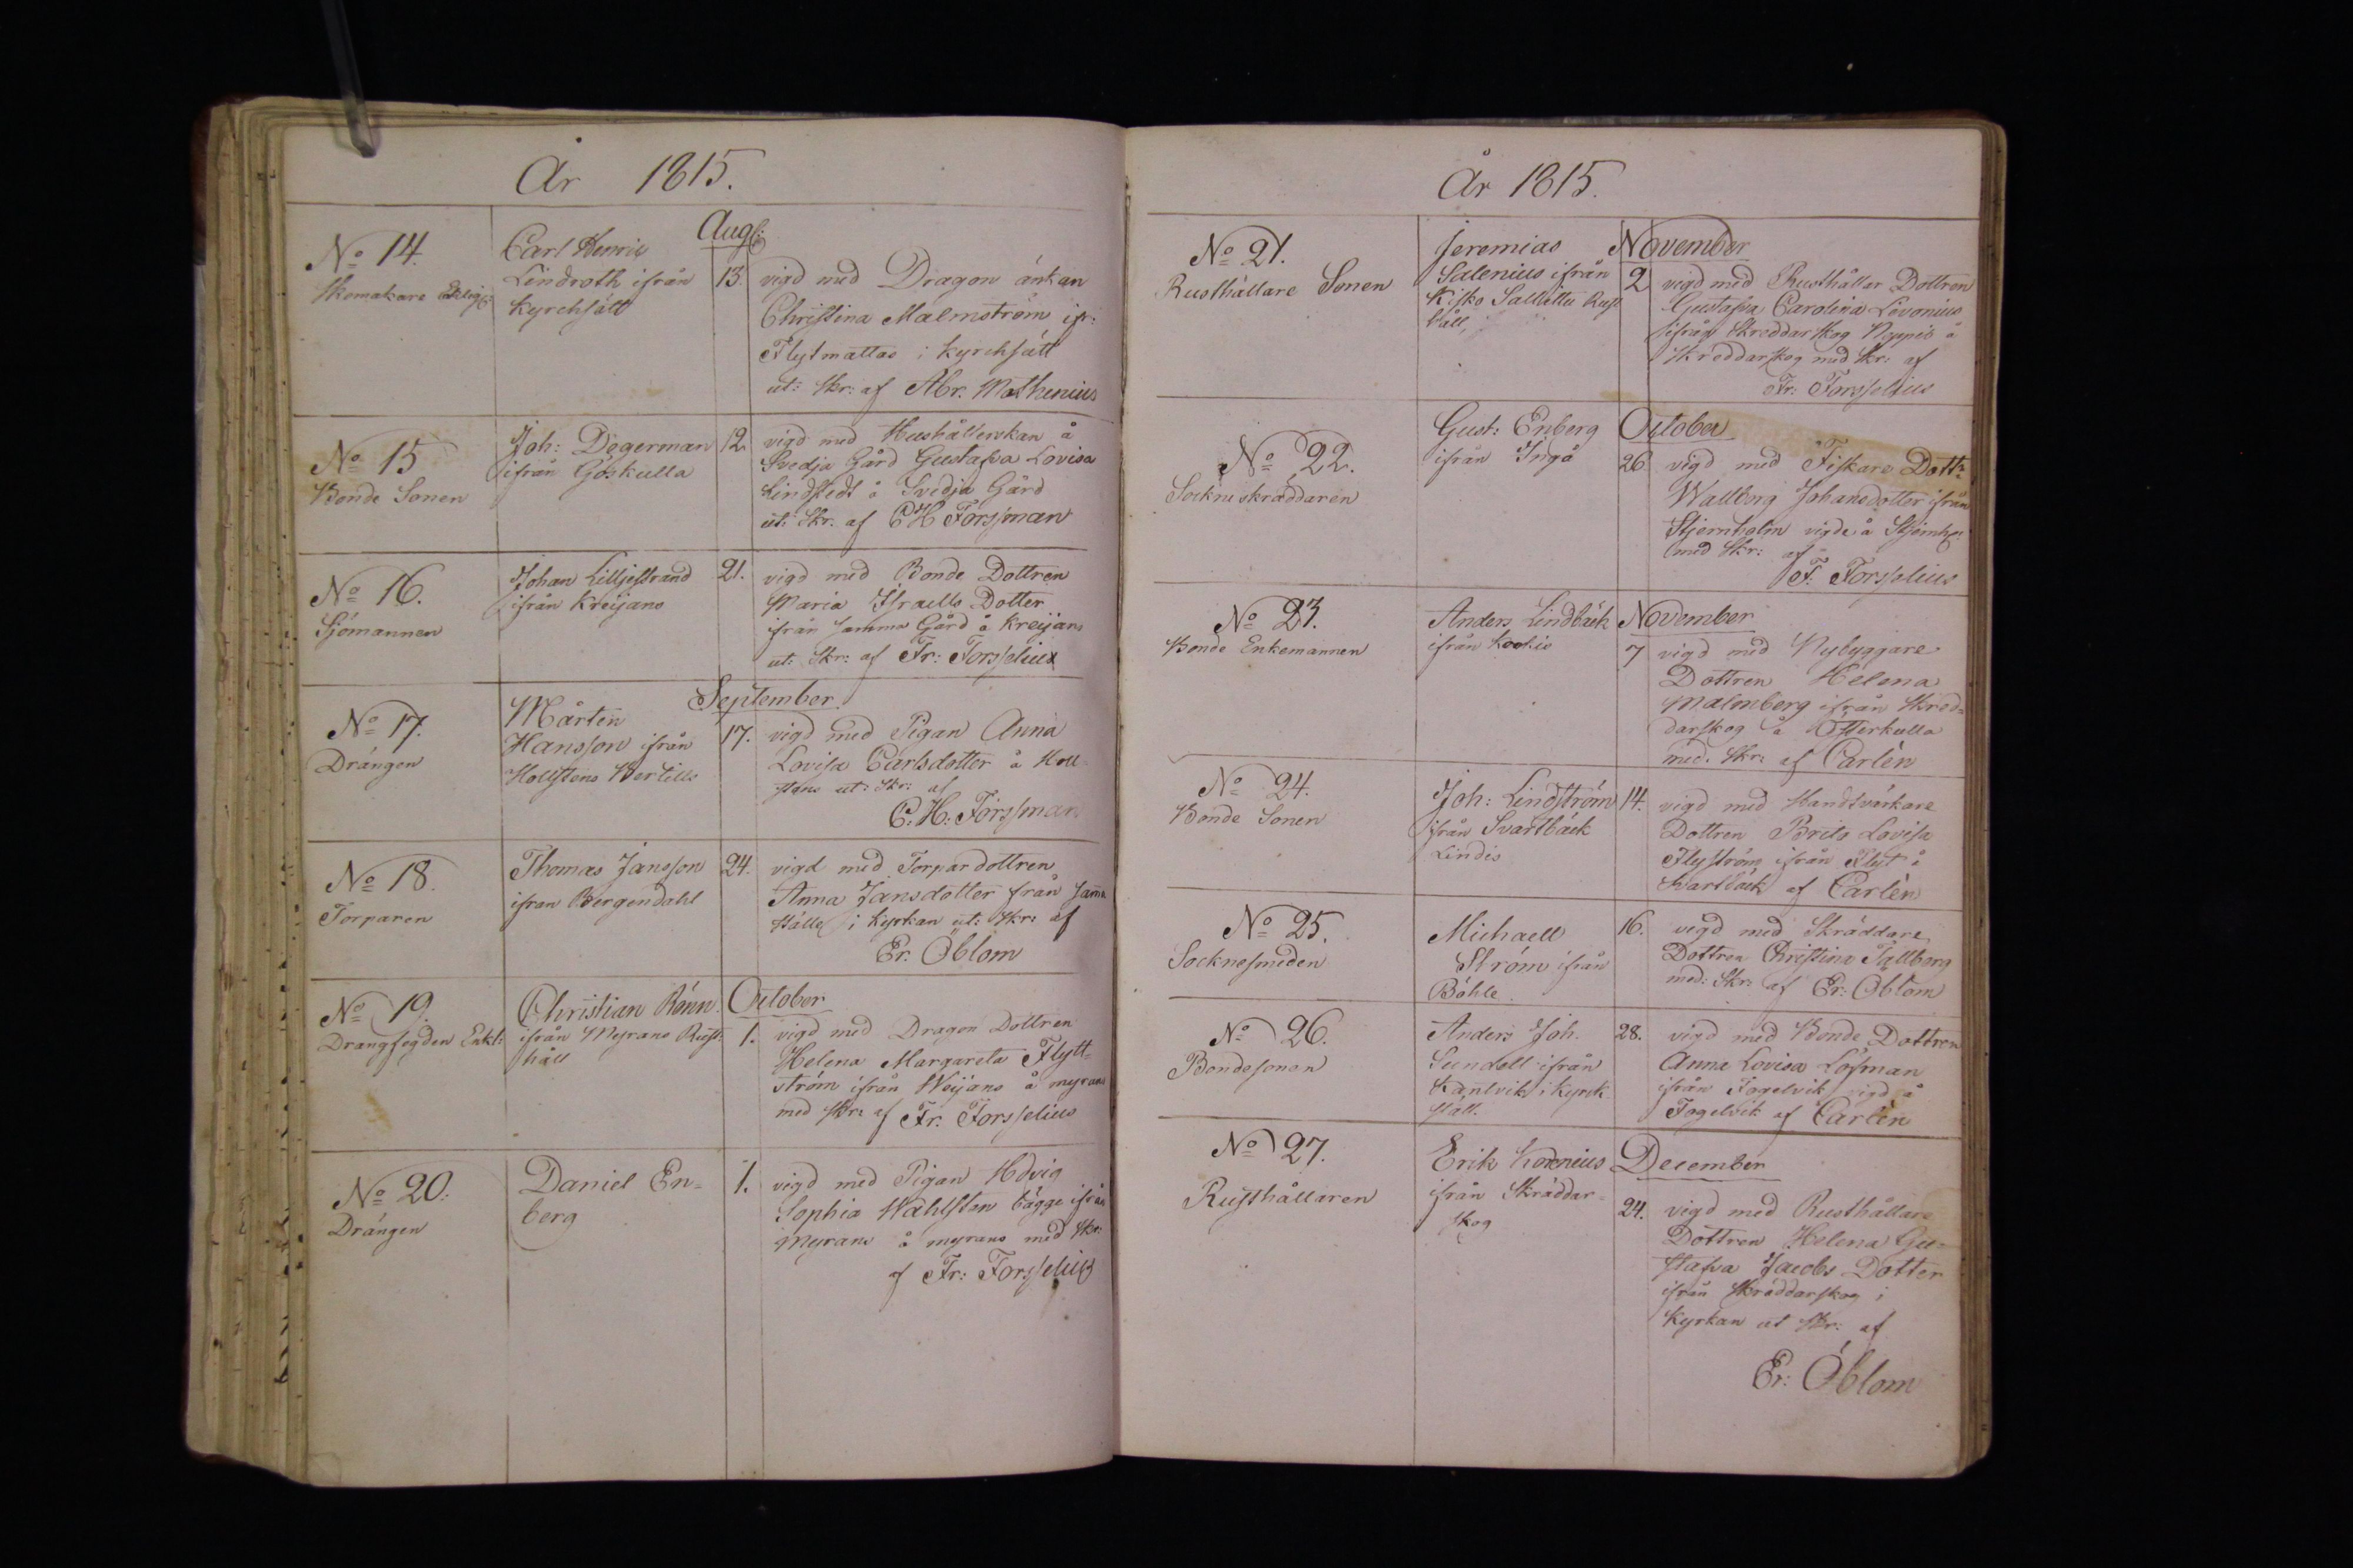 År 1815.
Aug:
No 14.
Skomakare
Carl Henric
Lindroth ifrån
Kyrchslätt
13. vigd med Dragon änkan
Christina Malmström ifr:
Flytmattas i Kyrchslätt
ut: Skr: af Abr. Mathenius
No 15
Bonde Sonen
Joh: Degerman
ifrån Göskulla
12. vigd med Hushållerskan å
Svedja Gård Gustafva Lovisa
Lindstedt å Svedja Gård
ut: Skr: af C H Forsman
No 16.
Sjömannen
Johan Lilljestrand
ifrån Kreijans
21. vigd med Bonde Dottren
Maria Israells Dotter
ifrån samma Gård å Kreijans
ut: Skr: af Fr: Forsselius
September
No 17.
Drängen
Mårten
Hansson ifrån
Hollstens Bertills
17. vigd med Pigan Anna
Lovisa Carlsdotter å Holl-
stens ut: Skr: af
C: H: Forssman
No 18.
Torparen
Thomas Jansson
ifran Bergendahl
24. vigd med Torpardottren
Anna Jansdotter från samma
ställe i kyrkan ut: Skr: af
Er. Öblom
October
No 19.
Drangfogden Enkl:
Christian Rönn
ifrån Myrans Rust:
håll
1. vigd med Dragon Dottren
Helena Margareta Flytt=
ström ifrån Weijans å myrans
med Skr: af Fr. Forsselius
No 20.
Drängen
Daniel En=
berg
1. vigd med Pigan Hedvig
Sophia Wahlsten bägge ifrån
Myrans å myrans med Skr:
af Fr: Forsselius
År 1815.
November
No 21.
Rusthållare Sonen
Jeremias
Salenius ifrån
Kisko Rust
håll
2 vigd med Rusthållar Dottren
Gustafva Carolina Levonius
ifrån Skreddarskog Neppis å
Skreddarskog med Skr: af
Fr: Forsselius
October
No 22.
Sockneskräddaren
Gust: Enberg
ifrån Ingå
26. vigd med Fiskare Dott:
Wallborg Johansdotter ifrån
Stjernholm vigde å Stjernho:
med Skr: af
F. Forsselius
November
No 23.
Bonde Enkemannen
Anders Lindbäck
ifrån Kockis
7 vigd med Nybyggare
Dottren Helena
Malmberg ifrån Skred=
darskog å Österkulla
med. Skr: af Carlén
No 24.
Bonde Sonen
Joh: Lindström
ifrån Svartbäck
Lindis
14. vigd med Handtvärkare
Dottren Brita Lovisa
Flyström ifrån Flyt å
Svartbäck af Carlén
No 25.
Socknesmeden
Michaell
Ström ifrån
Böhle
16. vigd med Skräddare
Dottren Christina Tallberg
med: Skr: af Er: Öblom
No 26.
Bondesonen
Anders Joh.
Sundell ifrån
Kantvik i Kyrck
slätt.
28. vigd med Bonde Dottren
Anna Lovisa Löfman
ifrån Fagelvik vigd å
Fagelvik af Carlén
December
No 27.
Rusthållaren
Erik Lorenius
ifrån Skräddar=
skog
24. vigd med Rusthållare
Dottren Helena Gu=
stafva Jacobs Dotter
ifrån Skräddarskog i
Kyrkan ut Skr: af
Er: Öblom